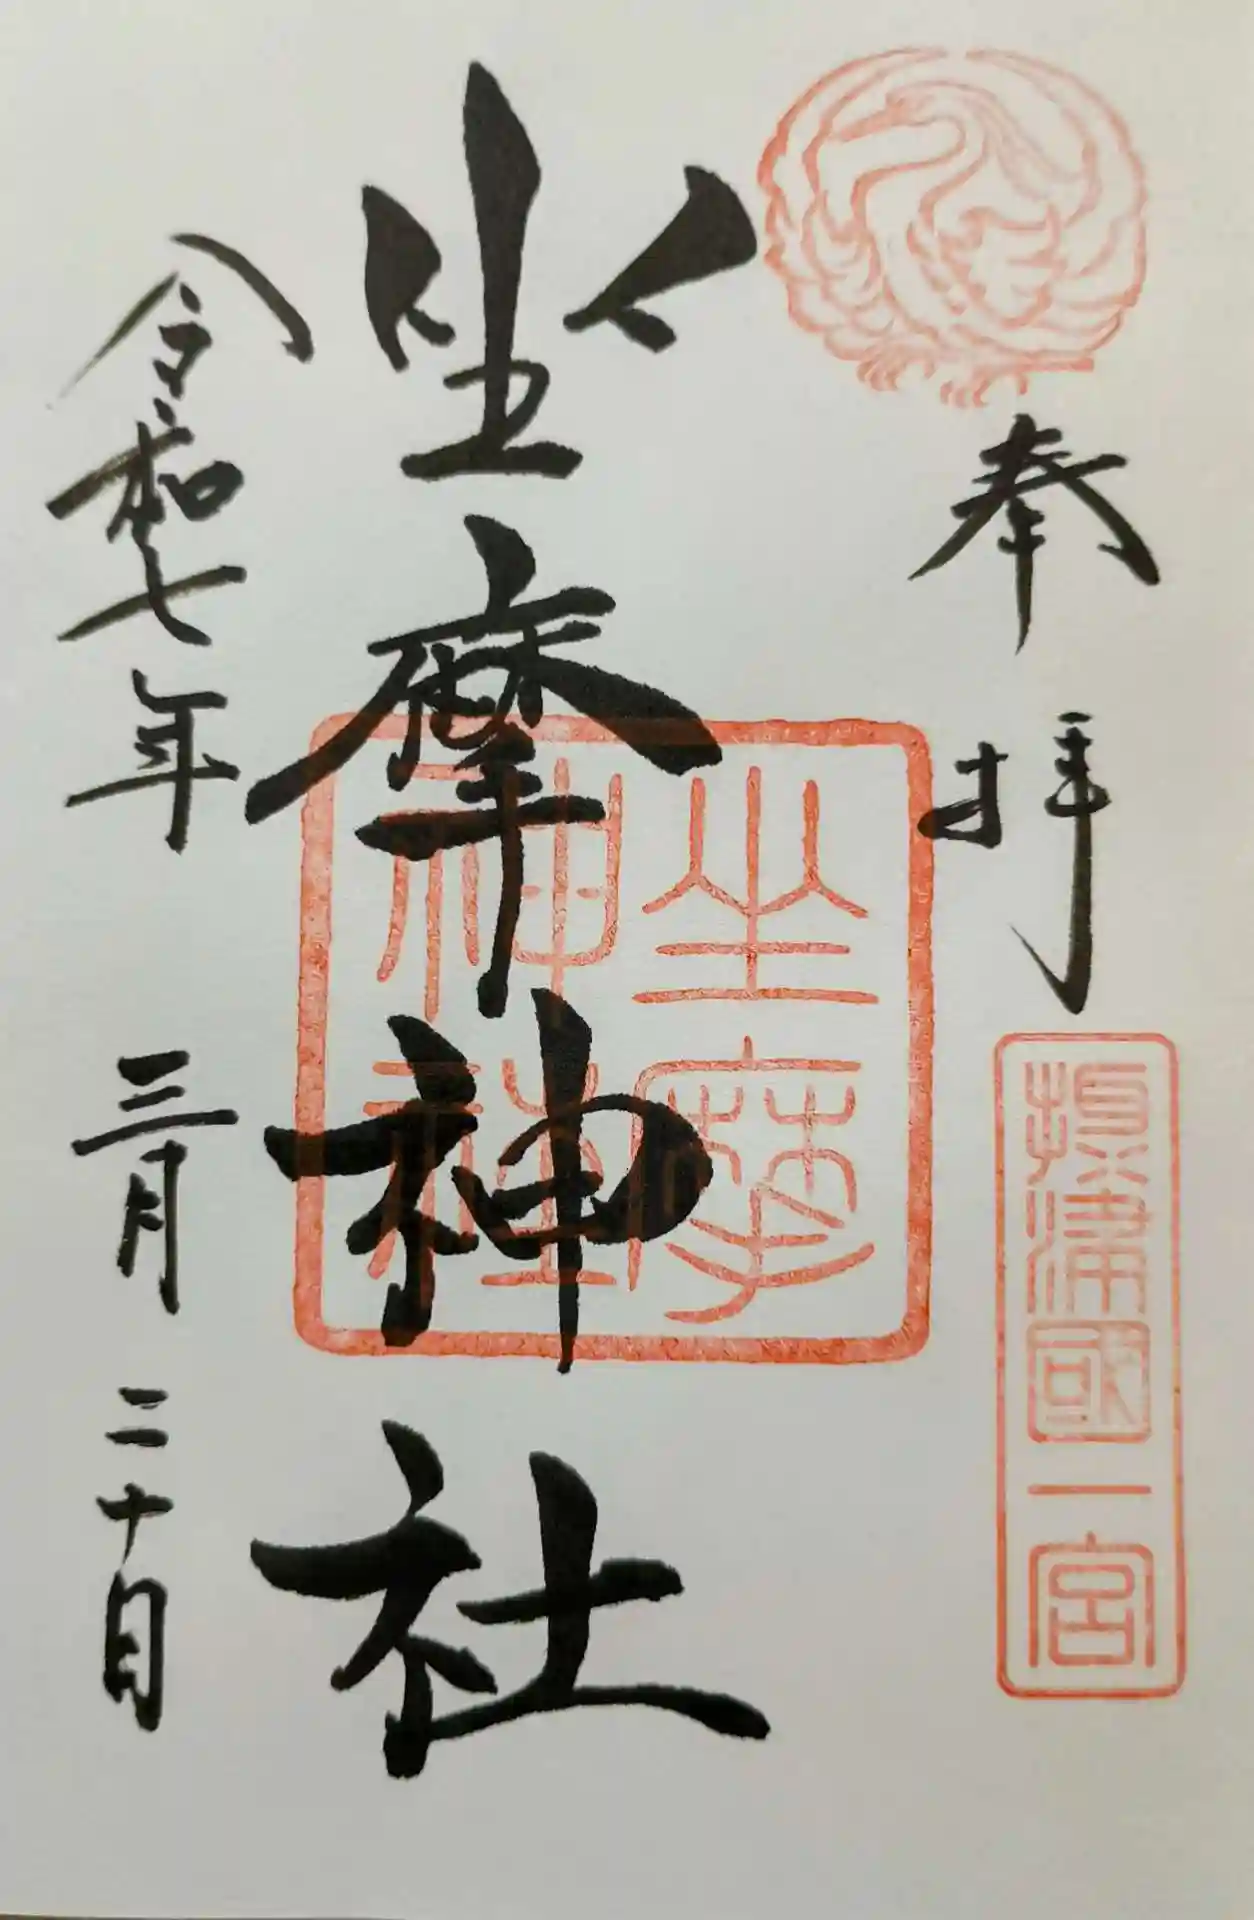 奉拝
攝津國一宮
坐摩神社
坐摩
神社
令和七年 三月 二十日